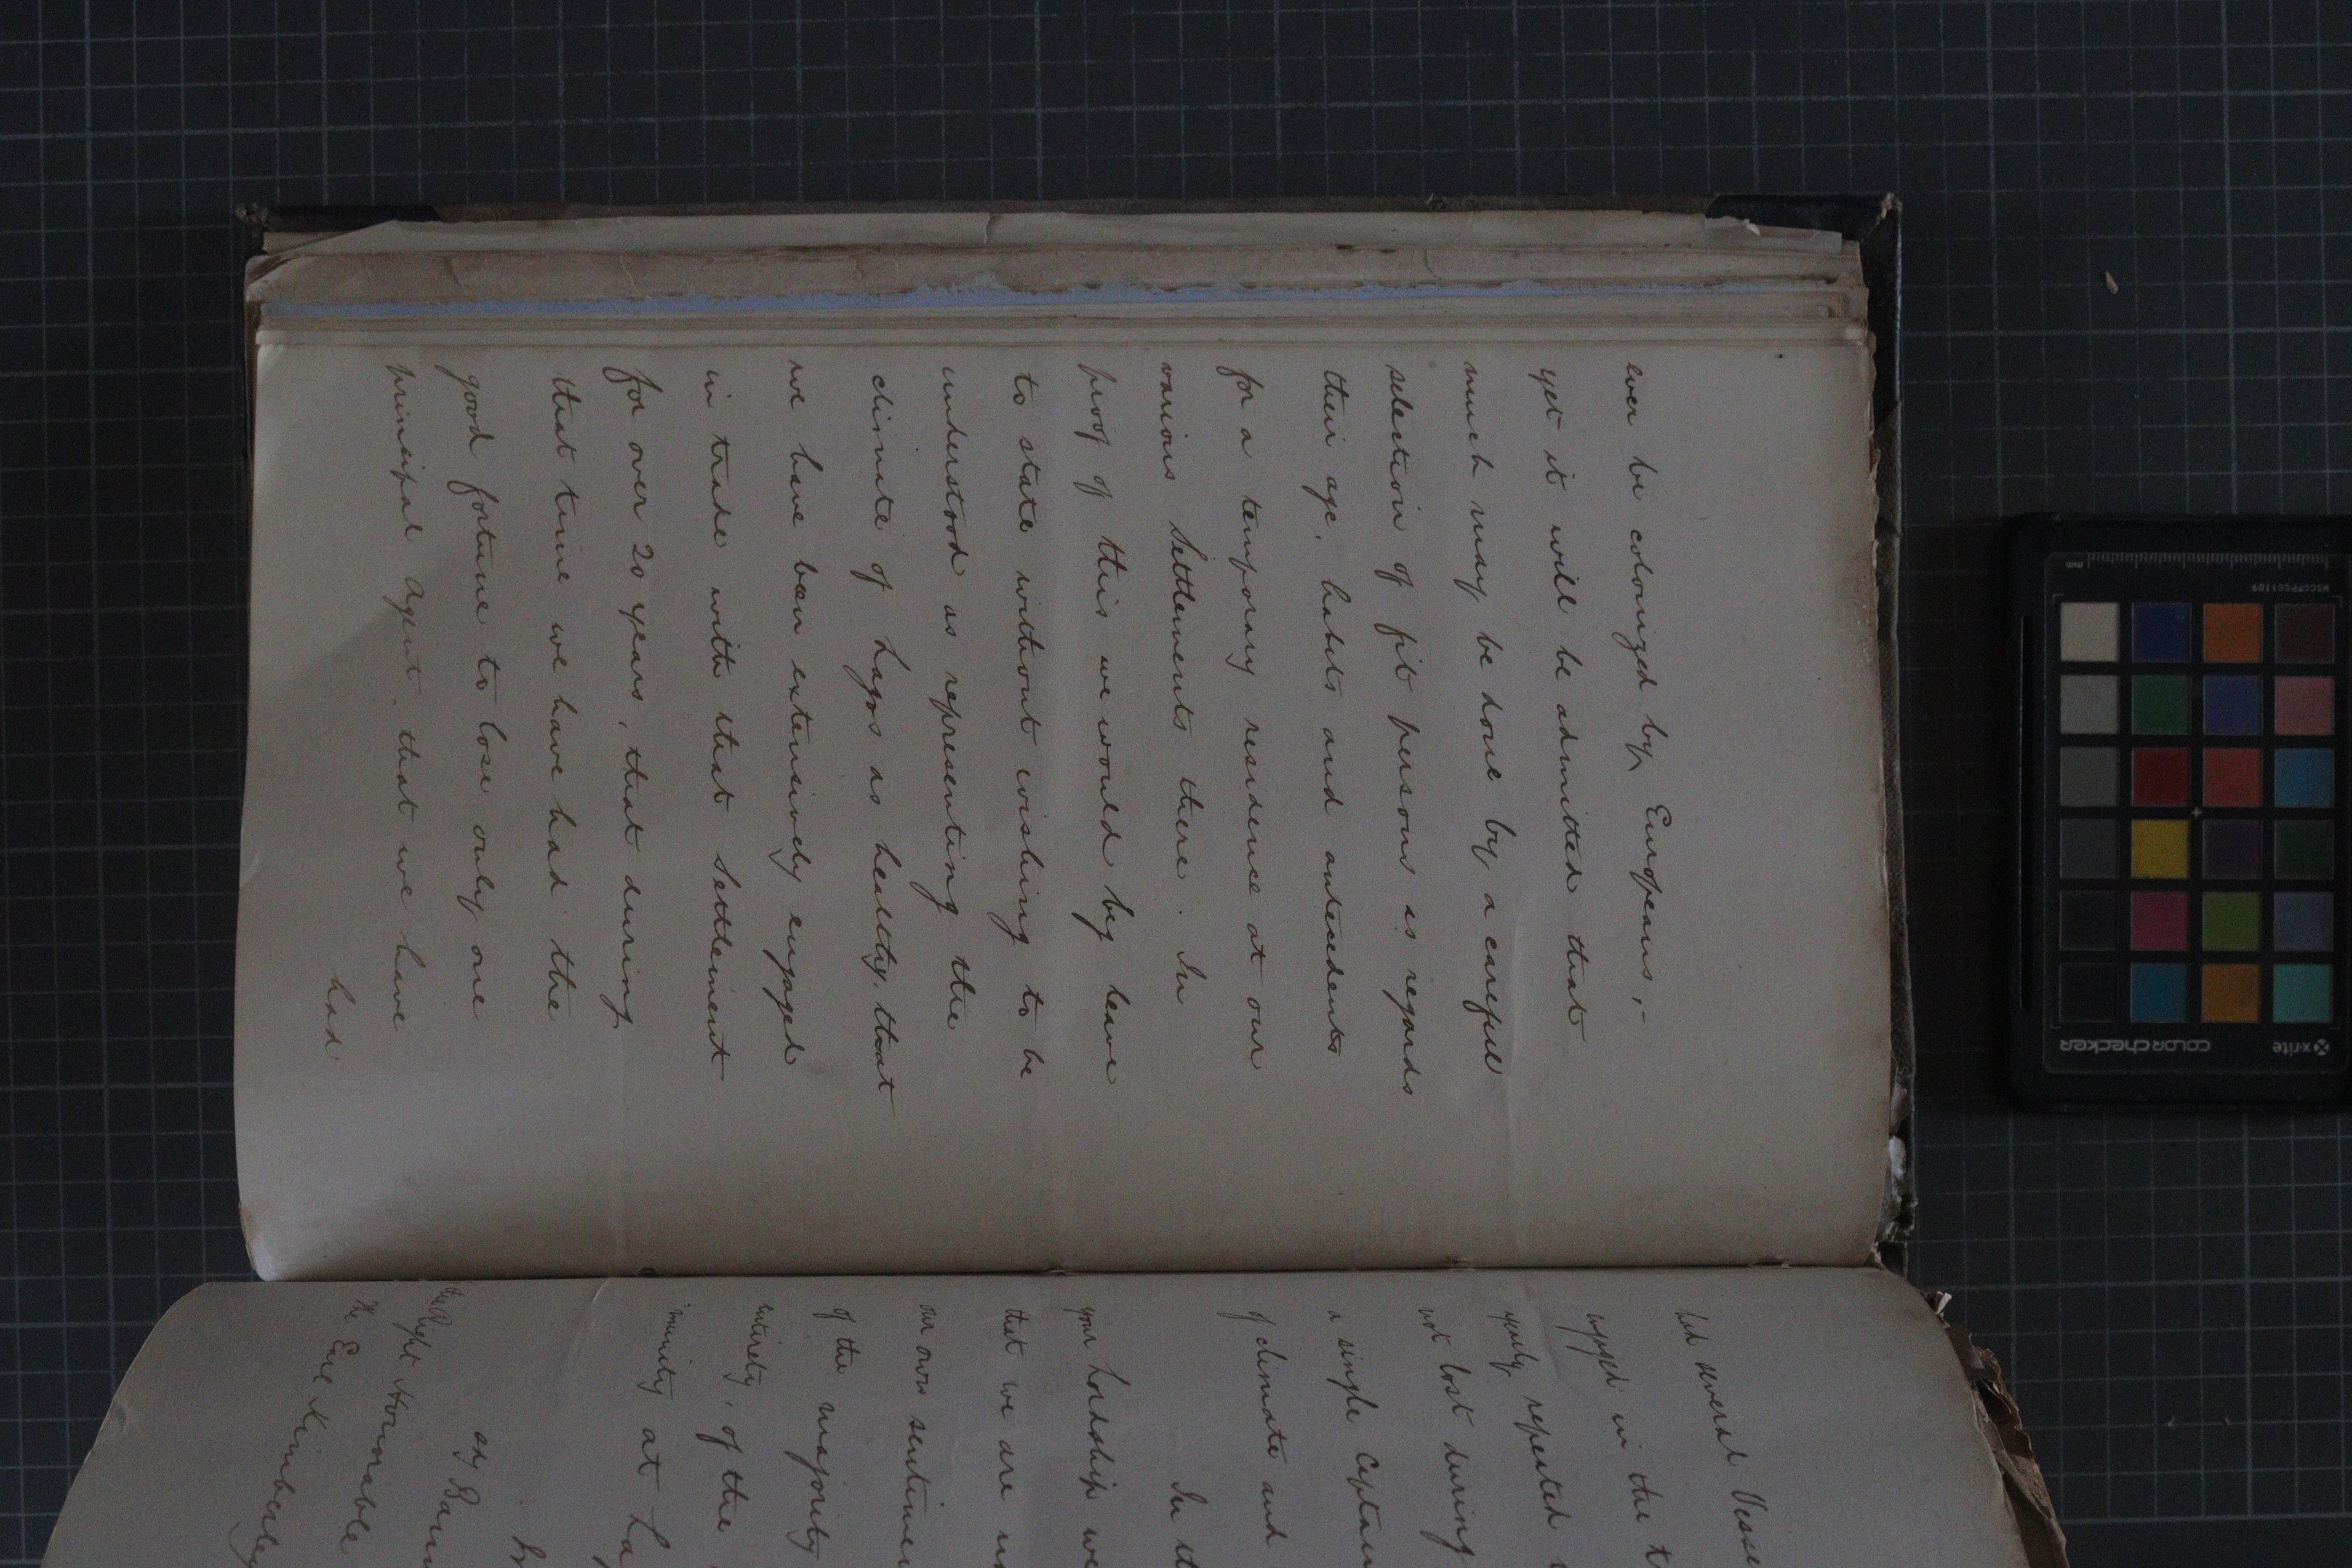 ever be colonized by Europeans;-
yet it will be admitted that
much may be done by a careful
selection of fit persons as regards
their age, habits and antecedents
for a temporary residence at our
various Settlements there. In
proof of this we would beg leave
to state without wishing to be
understood as representing the
climate of Lagos as healthy, that
we have been extensively engaged
in trade with that Settlement
for over 20 years, that during
that time we have had the
good fortune to lose only one
principal Agent, that we have
had
had several Vesse
engaged in the t
yearly repeated
not lost during
a single Captain
of climate and
In th
your Lordship we
that we are
our own sentime
of the majority
entirety, of the
immunity at La
any
The Right Honorable
The Earl Kimberley
mm
MSCCPPCC1109
x-rite
colorchecker